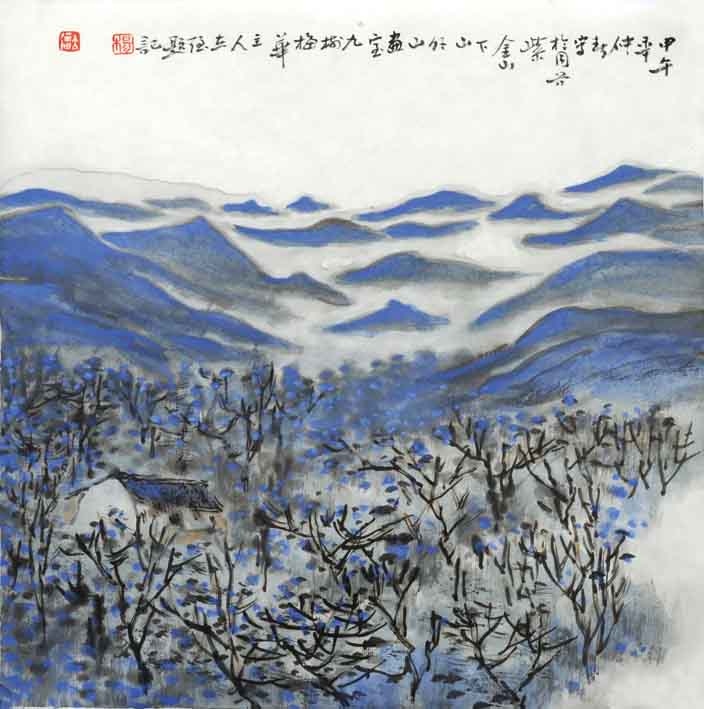 甲午年仲秋写於同谷紫金山下山外山畫室九樹梅華主人題記
楊